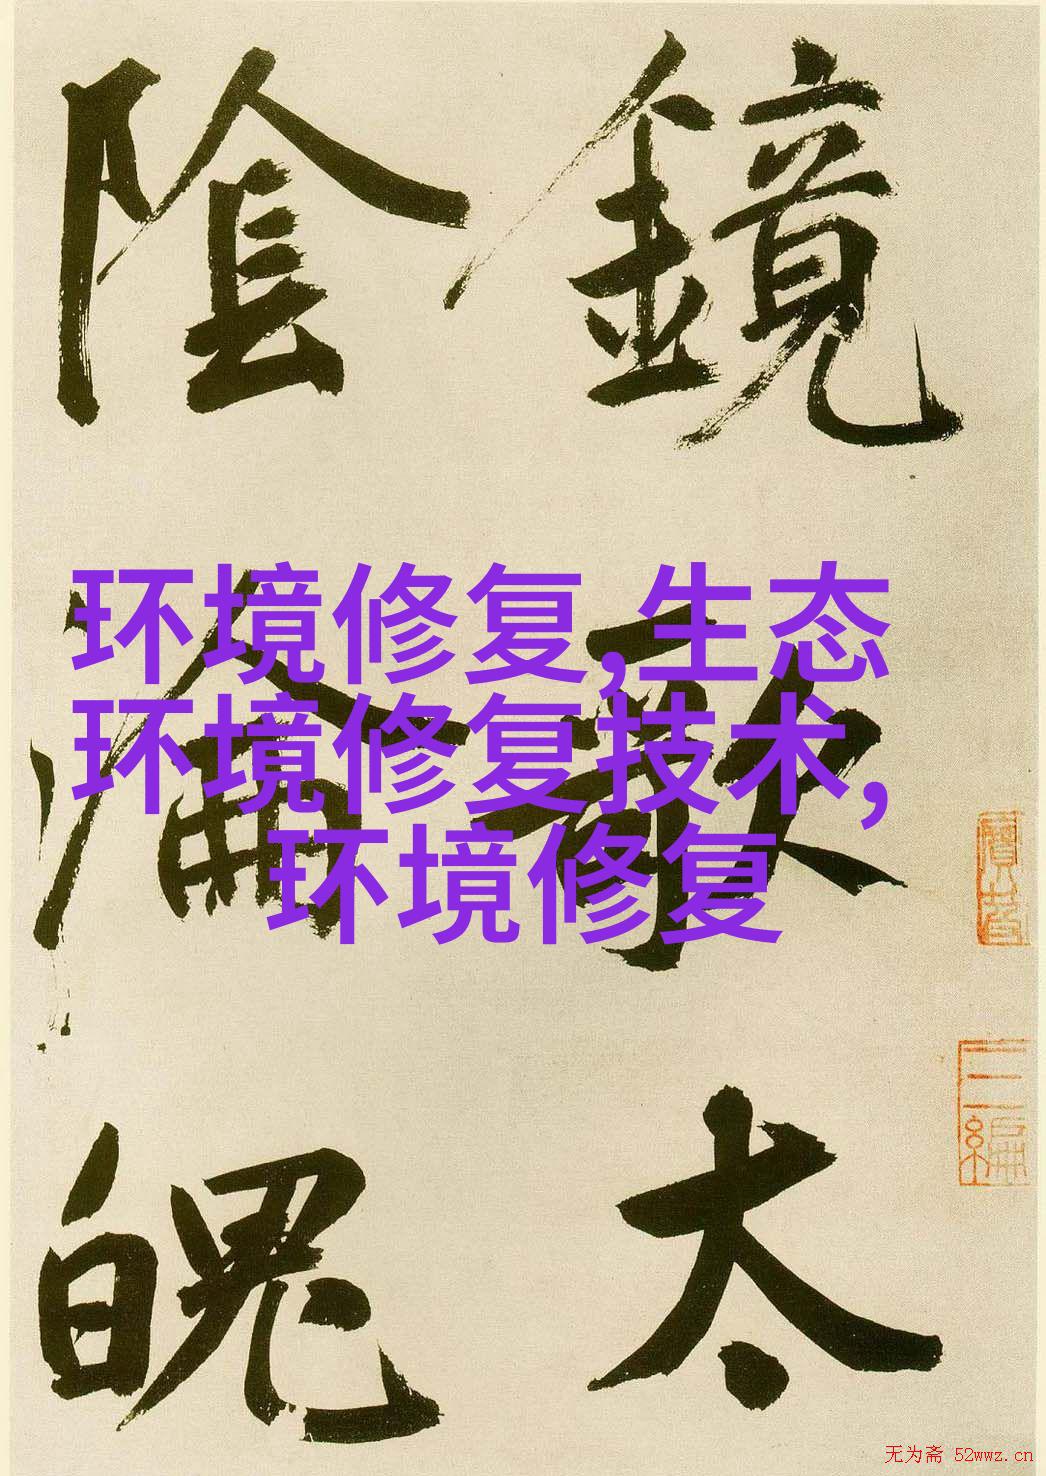 鏡歛太
陰淪魄
环境修复,生态
环境修复技术,
环境修复
无为斋 52wwz.cn